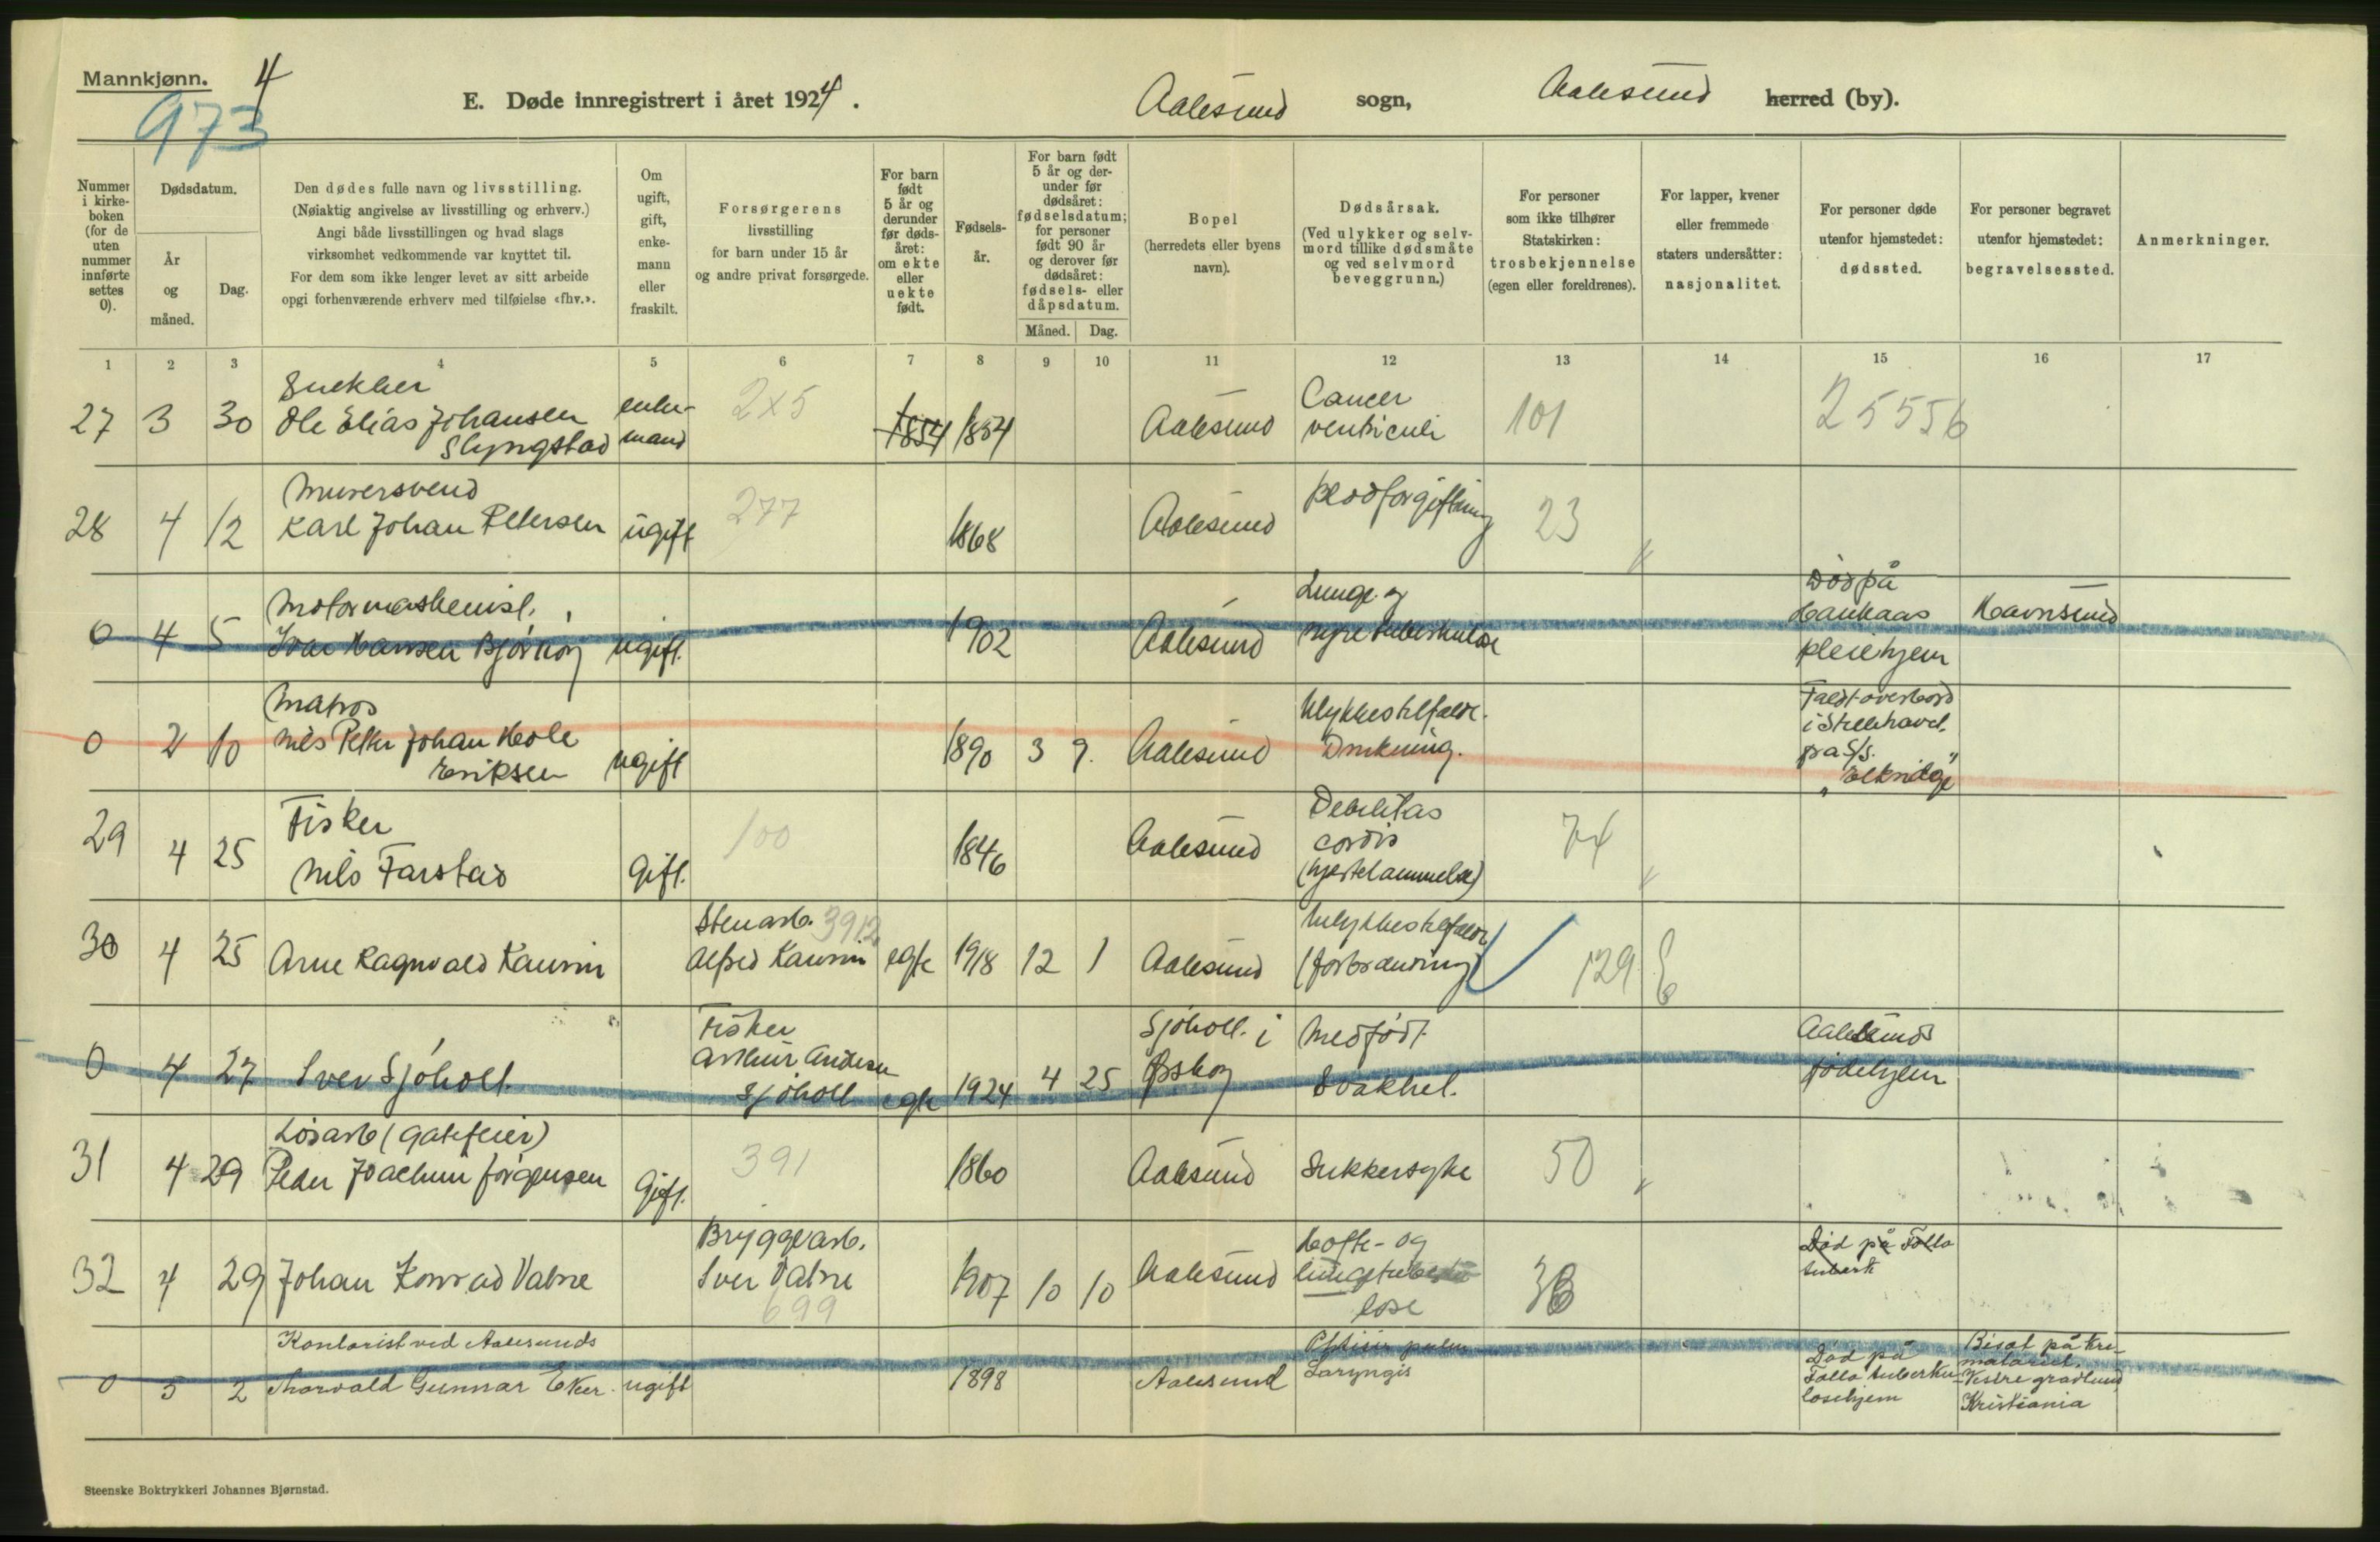 Mannkjønn.
4
973
E. Døde innregistrert i året 1924.
Aalesund sogn,
Aalesund herred (by).
Nummer i kirkeboken (for de uten nummer innførte settes 0).
Dødsdatum.
År og måned.
Dag.
Den dødes fulle navn og livsstilling.
(Nøiaktig angivelse av livsstilling og erhverv.)
Angi både livsstillingen og hvad slags
virksomhet vedkommende var knyttet til.
For dem som ikke lenger levet av sitt arbeide
opgi forhenværende erhverv med tilføielse «fhv.».
Om ugift, gift, enkemann eller fraskilt.
Forsørgerens
livsstilling
for barn under 15 år
og andre privat forsørgede.
For barn født 5 år og derunder før dødsåret: om ekte eller uekte født.
Fødselsår.
For barn født 5 år og derunder før dødsåret: fødselsdatum; for personer født 90 år og derover før dødsåret: fødsels- eller dåpsdatum.
Måned.
Dag.
Bopel
(herredets eller byens
navn).
Dødsårsak.
(Ved ulykker og selvmord tillike dødsmåte og ved selvmord beveggrunn.)
For personer
som ikke tilhører
Statskirken:
trosbekjennelse
(egen eller foreldrenes).
For lapper, kvener
eller fremmede
staters undersåtter:
nasjonalitet.
For personer døde
utenfor hjemstedet:
dødssted.
For personer begravet
utenfor hjemstedet:
begravelsessted.
Anmerkninger.
1 2 3 4 5 6 7 8 9 10 11 12 13 14 15 16 17
27 3 30 Snekker
Ole Elias Johansen
Slyngstad
enke-
mand
2x5
1854 1854
Aalesund
Cancer
ventriculi
101
25556
28 4 12 Murersvend
Karl Johan Petersen
ugift
277
1868
Aalesund
Blodforgiftning
23
0 4 5 Motormaskinist.
Ivar Hansen Bjørnøy
ugift.
1902
Aalesund
Lunge og
nyretuberkulose
Død på
Haukaas
pleiehjem
Havnsund
0 2 10 Matros
Nils Petter Johan Hole
Eriksen
ugift
1890 3 9.
Aalesund
Ulykkestilfælde.
Drukning.
Faldt overbord
i Stillehavet,
fra S/S.
"Elkridge"
29 4 25 Fisker
Nils Farstad
Gift.
100
1846
Aalesund
Debilitas
cordis
(hjertelammelse)
74
30 4 25 Arne Ragnvald Kaurin
Stenarb. 3912
Alfred Kaurin
egte 1918 12 1
Aalesund
Ulykkestilfælde
(forbrænning)
129
0 4 27 Iver Sjøholt.
Fisker
Arthur Andersen
Sjøholt
egte 1924 4 25
Sjøholt i
Ørskog
Medfødt
Svakhet.
Aalesunds
fødehjem
31 4 29 Løsarb (Gatefeier)
Peder Joachim Jørgensen
Gift.
391
1860
Aalesund
Sukkersyke
50
32 4 29 Johan Konrad Vatne
Bryggearb.
Iver Vatne
699
1907 10 10
Aalesund
Hofte- og
lungetuberku
lose
Død på Tolla
tuberk
0 5 2 Kontorist ved Aalesunds
Thorvald Gunnar Eker.
ugift
1898
Aalesund
Phtisis pulm
Laryngis
Død på
Tolla tuberku-
losehjem
Bisat på kre-
matoriet.
Vestre gravlund
Kristiania
Steenske Boktrykkeri Johannes Bjørnstad.